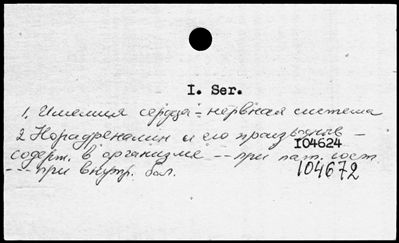 I. Ser.
1. Ишемия сердца - нервная система
2 Норадреналин и его производные -
I04624
содерж. в организме -- при пат. сост.
--- при внутр. бол.
104672